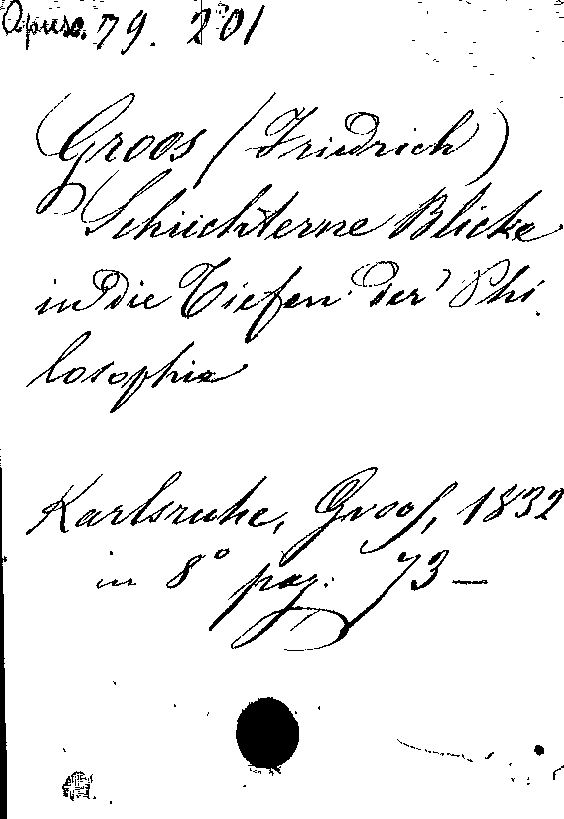 Opusc. 79. 201
Groos (Friedrich)
Schüchterne Blicke
in die Tiefen der Phi
losophie
Karlsruhe, Groos, 1832
in 8° pag. 73 —